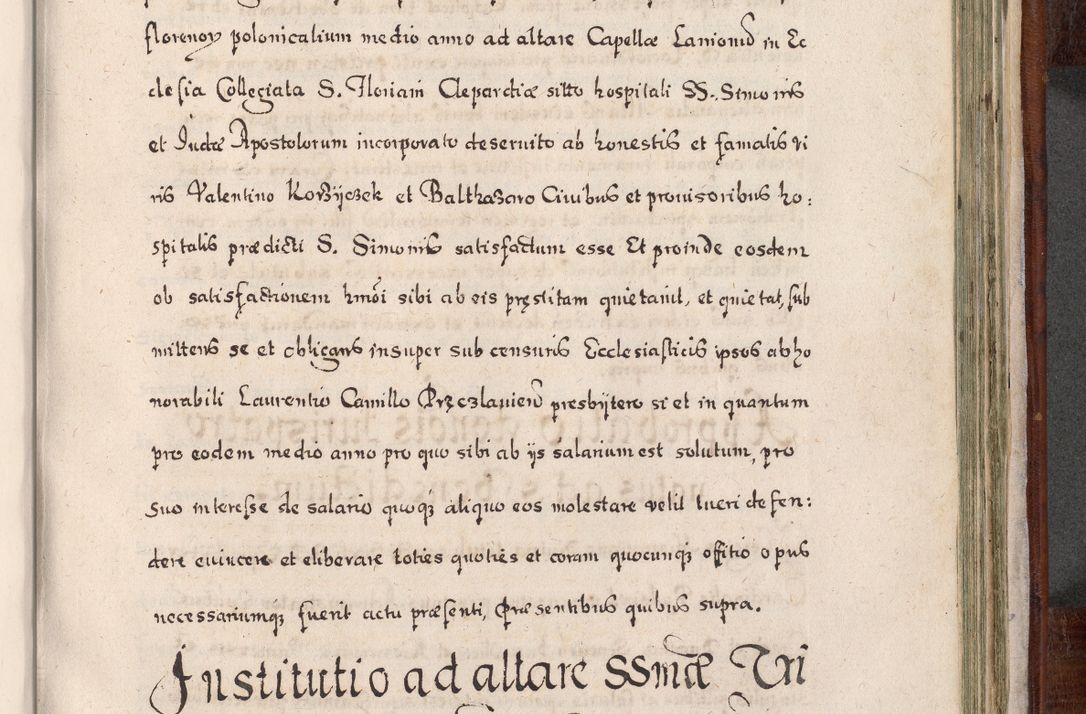 florenoꝝ polonicalium medio anno ad altare Capellæ Lanionũ in Ec
clesia Collegiata S. Floriani Clepardiæ sitto hospitali SS. Simonis
et Iudæ Apostolorum incorporato deservito ab honestis et famatis vi
ris Valentino Korzÿczek et Balthazaro Civibus et provisoribus ho:
spitalis prædicti S. Simonis satisfactum esse Et proinde eosdem
ob satisfactionem hmõi sibi ab eis pręstitam quietavit, et quietat, sub
mittens se et obligans insuper sub censuris Ecclesiasticis ipsos ab ho
norabili Laurentio Camillo Przeczlavien̄ presbÿtero si et in quantum
pro eodem medio anno pro quo sibi ab ijs salarium est solutum, pro
suo interesse de salario quoqꝫ aliquo eos molestare velit tueri defen:
dere evincere et eliberare toties quoties et coram quocunqꝫ offitio opus
necessariumqꝫ fuerit actu præsenti, Præsentibus quibus supra.
Institutio ad altare SSmæ Tri